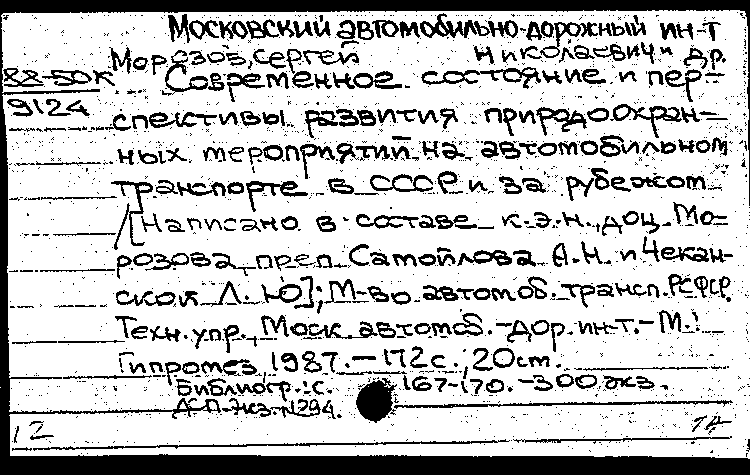 Московский автомобильно-дорожный ин-т
Морозов, Сергей Николаевич и др.
88-50к Современное состояние и пер-
9124 спективы развития природоохран-
ных мероприятий на автомобильном
транспорте в СССР и за рубежом
/ [Написано в составе к.э.н., доц. Мо-
розова, преп. Самойлова А.Н. и Чекан-
ской Л.Ю]; М-во автомоб. трансп. РСФСР.
Техн. упр., Моск. автомоб.-дор. ин-т.- М.:
Гипротез, 1987. - 172 с., 20 см.
Библиогр.: с. 167-170. - 300 экз.
Д-П-Экз. N294.
12 74